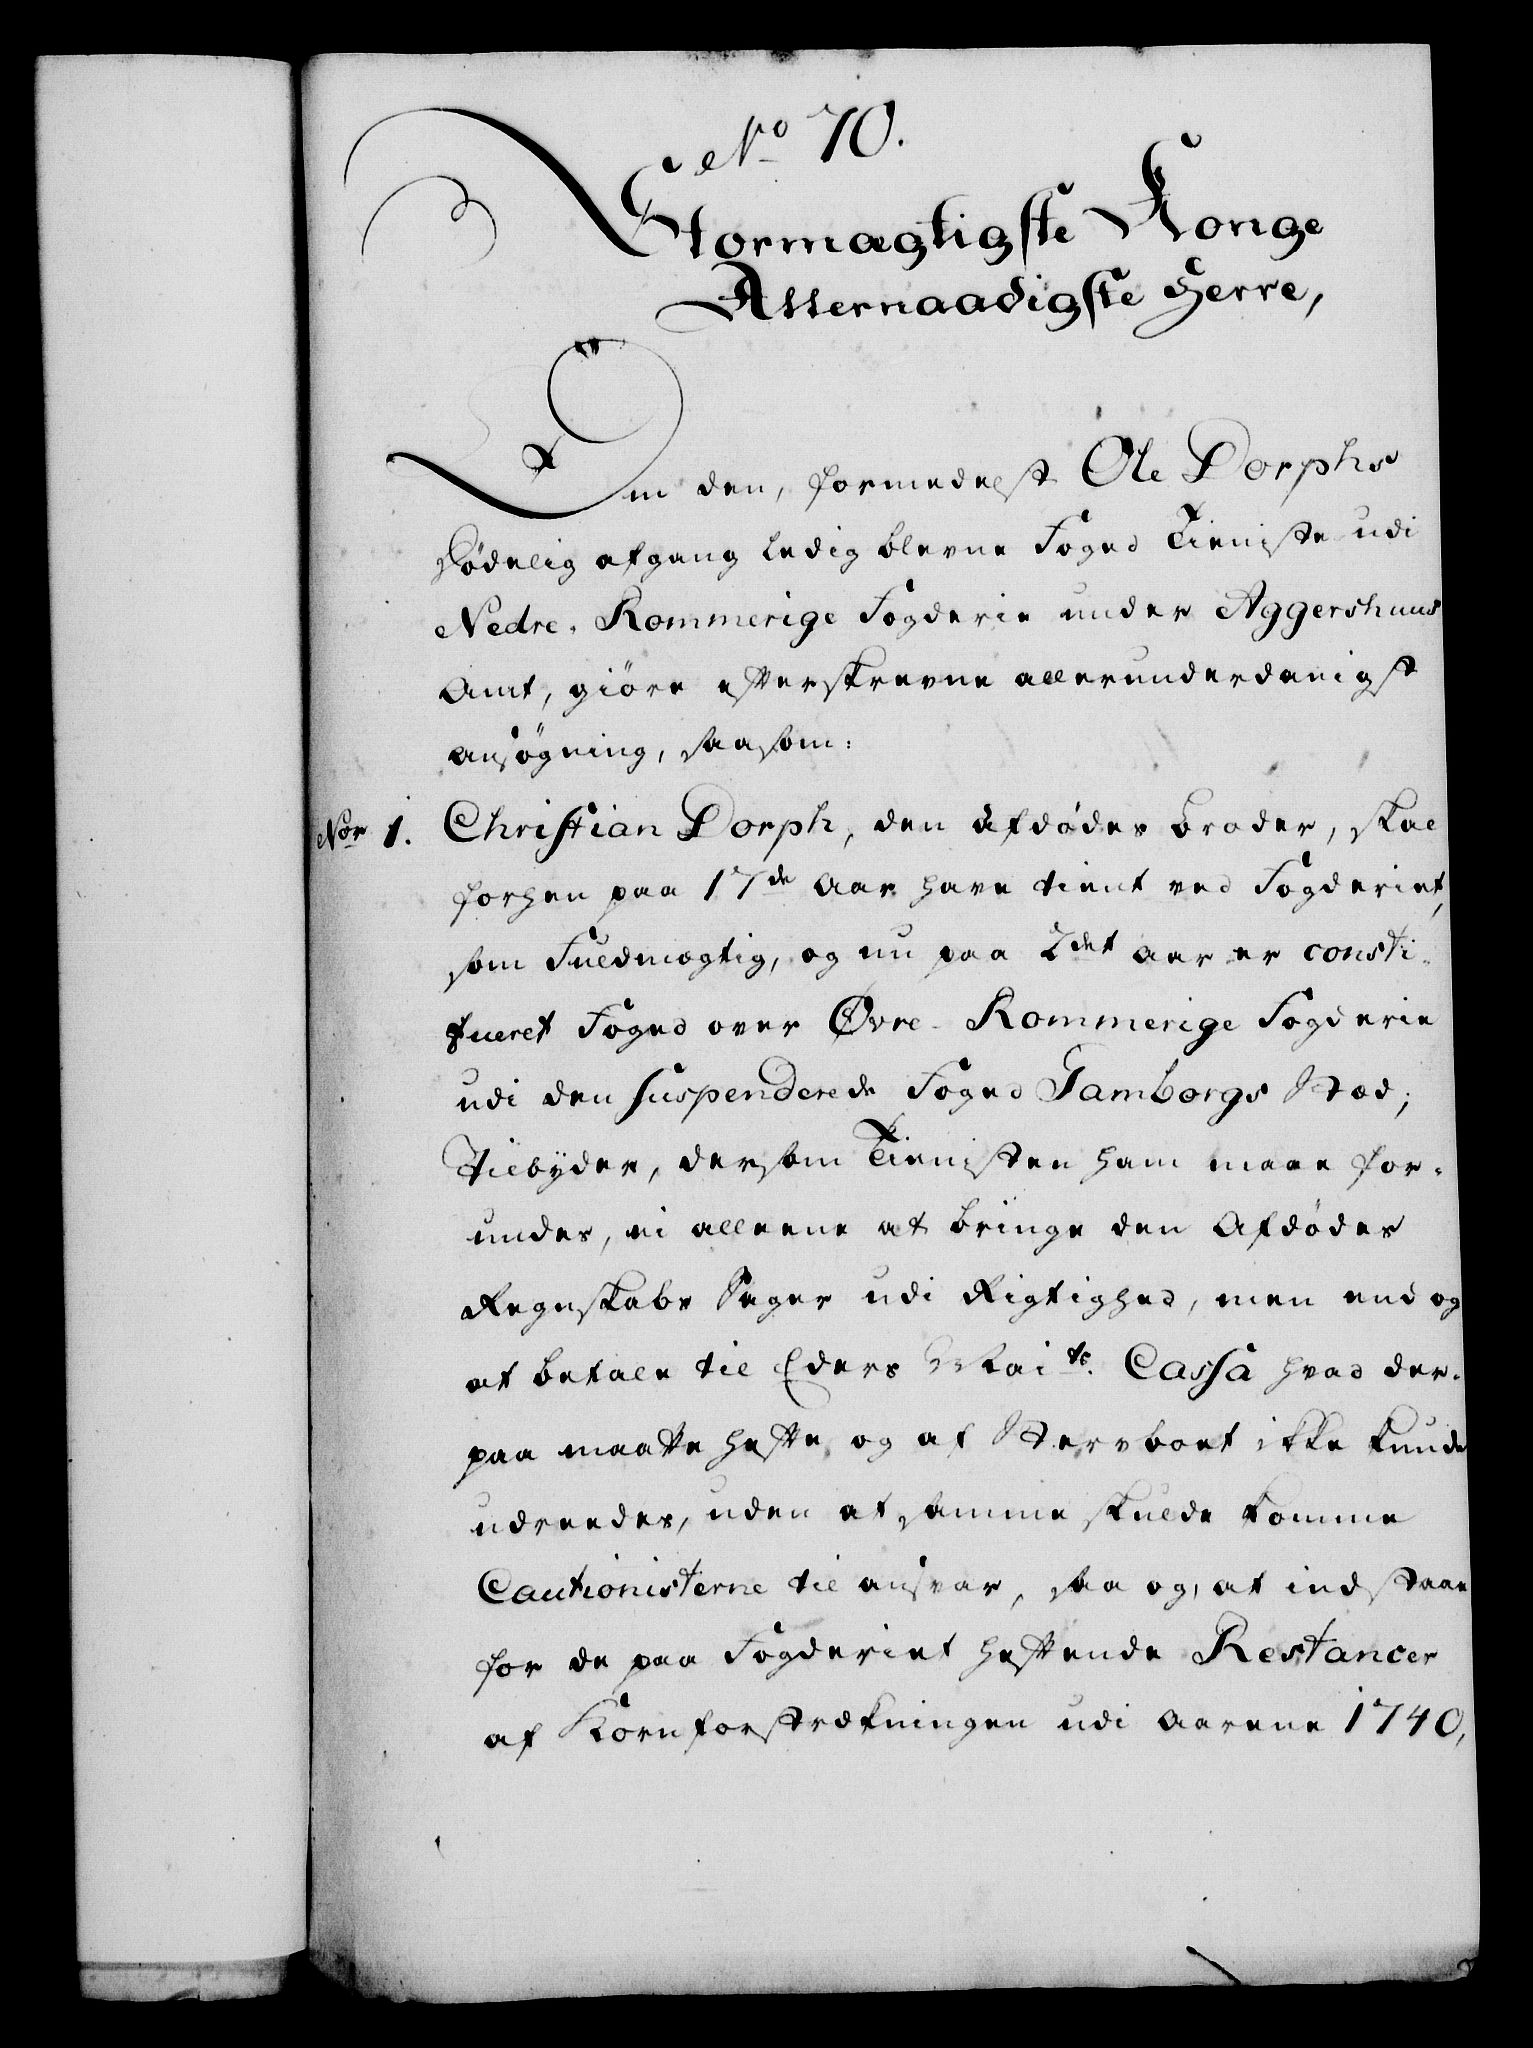 No 70.
Stormægtigste Konge
Allernaadigste Herre,
Om den, formedelst Ole Dorphs
dödelig afgang ledig blevne Foged Tieniste udi
Nedre-Rommerige Fogderie under Aggershuus
Amt, giöre efterskrevne allerunderdanigst
ansögning, saasom:
Nor 1. Christian Dorph, den afdödes broder, skal
forhen paa 17de Aar have tient ved Fogderiet,
som Fuldmægtig, og nu paa 2det aar er consti-
tueret Foged over Øvre-Rommerige Fogderie
udi den suspenderede Foged Gamborgs Stæd;
Tilbyder, dersom Tienisten ham maae for-
undes, ei alleene at bringe den Afdödes
Regnskabs Sager udi Rigtighed, men end og
at betale til Eders Maits. Cassa hvad der-
paa maatte hefte og af Stervboet ikke kunde
udreedes, uden at samme skulde komme
Cautionisterne til ansvar, saa og, at indstaae
for de paa Fogderiet heftende Restancer
af Kornforstrækningen udi Aarene 1740,